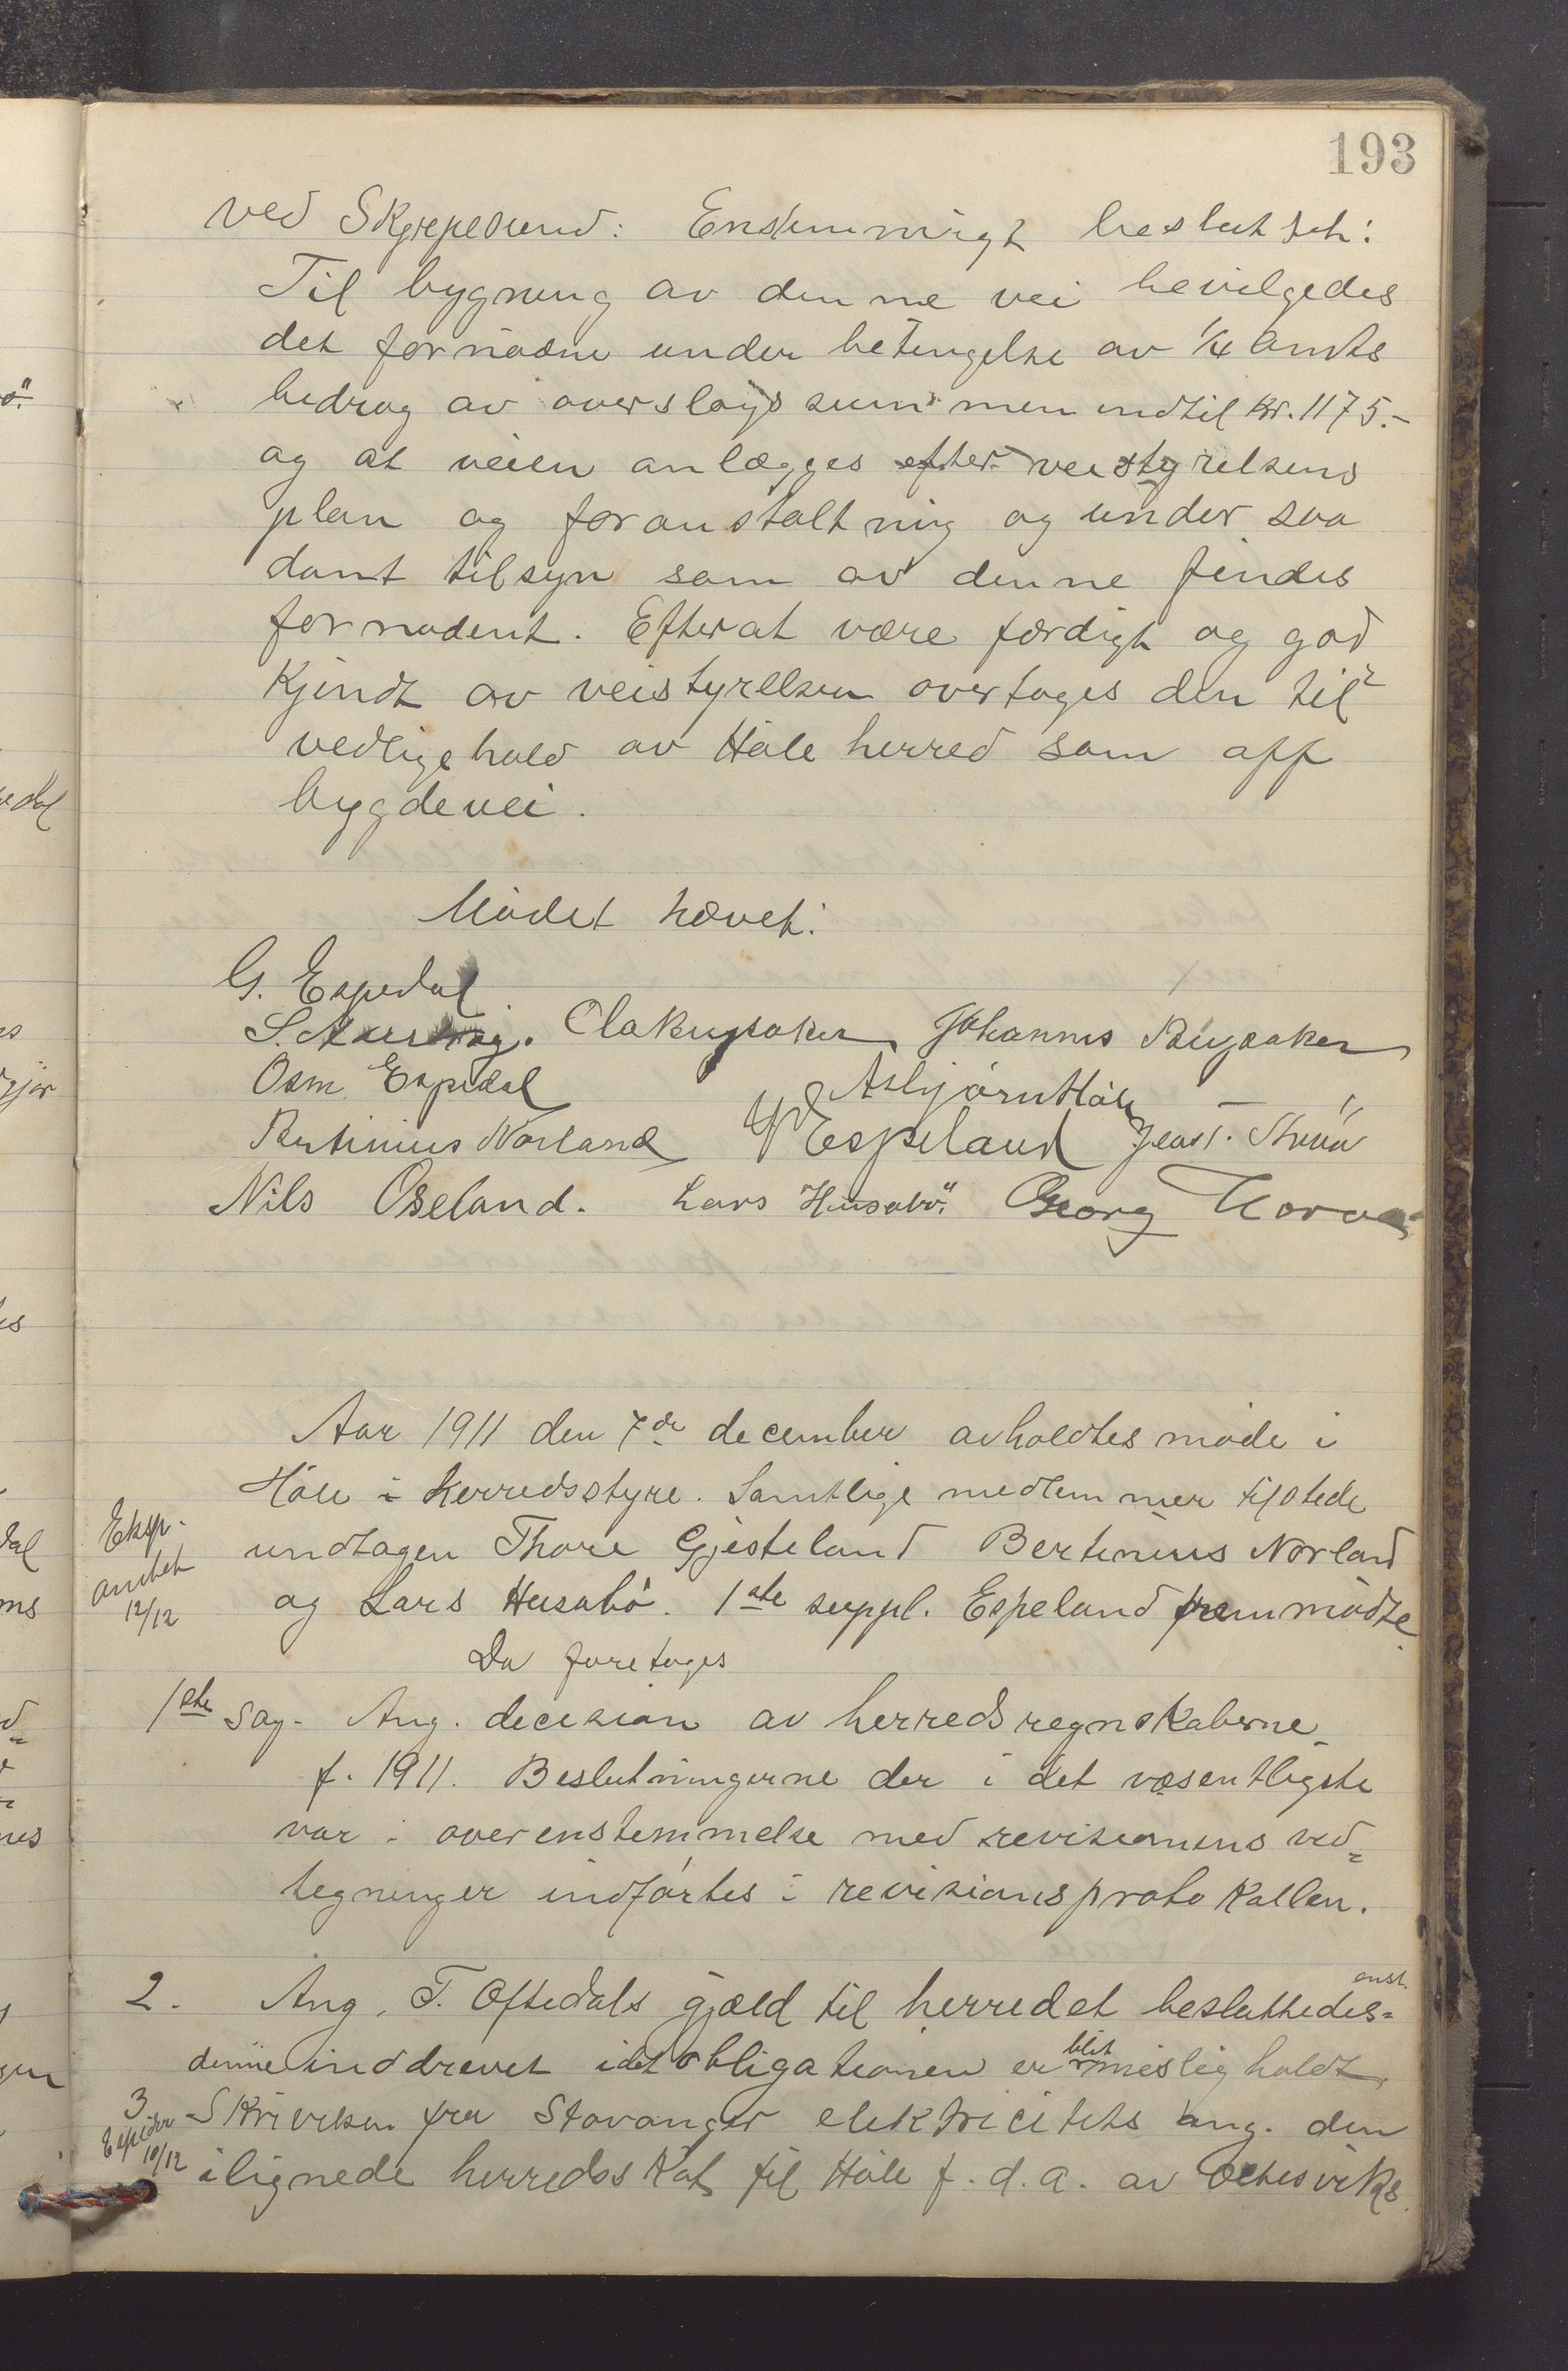 193
ved Skjrepesund: Enstemmigt besluttet:
Til bygning av denne vei bevilgedes
det fornødne under betingelse av 1/4 amts
bidrag av overslagssummen indtil kr. 1175.-
og at veien anlægges efter veistyrelsens
plan og foranstaltning og under saa
dant tilsyn som av denne findes
fornødent. Efterat være færdigt og god
kjendt av veistyrelsen overtages den til
vedligehold av Høle herred som off
bygdevei.
Mødet hævet.
G. Espedal
Ola Bugsaker Johannes Bugsaker
Osm. Espedal Asbjørn Høle
Bertinius Norland Espeland
Nils Oseland. Lars Husabø. Georg
Aar 1911 den 7de december avholdtes møde i
Høle i herredsstyre. Samtlige medlemmer tilstede
Eksp.
amtet
12/12
undtagen Thore Gjesteland Bertinius Norland
og Lars Husabø. 1ste suppl. Espeland fremmødte.
Da foretages
1ste sag. Ang. decision av herredsregnskaberne
f. 1911. Beslutningerne der i det væsentligste
var i overenstemmelse med revisionens ved=
tegninger indførtes i revisionsprotokollen.
2. Ang. T. Oftedals gjæld til herredet besluttedes enst.
denne inddrevet idet obligationen er blit misligholdt.
3 Skrivelse fra Stavanger elektricitets ang. den
Exspeder 10/12
ilignede herredsskat til Høle f. d. a. av Oltesviks